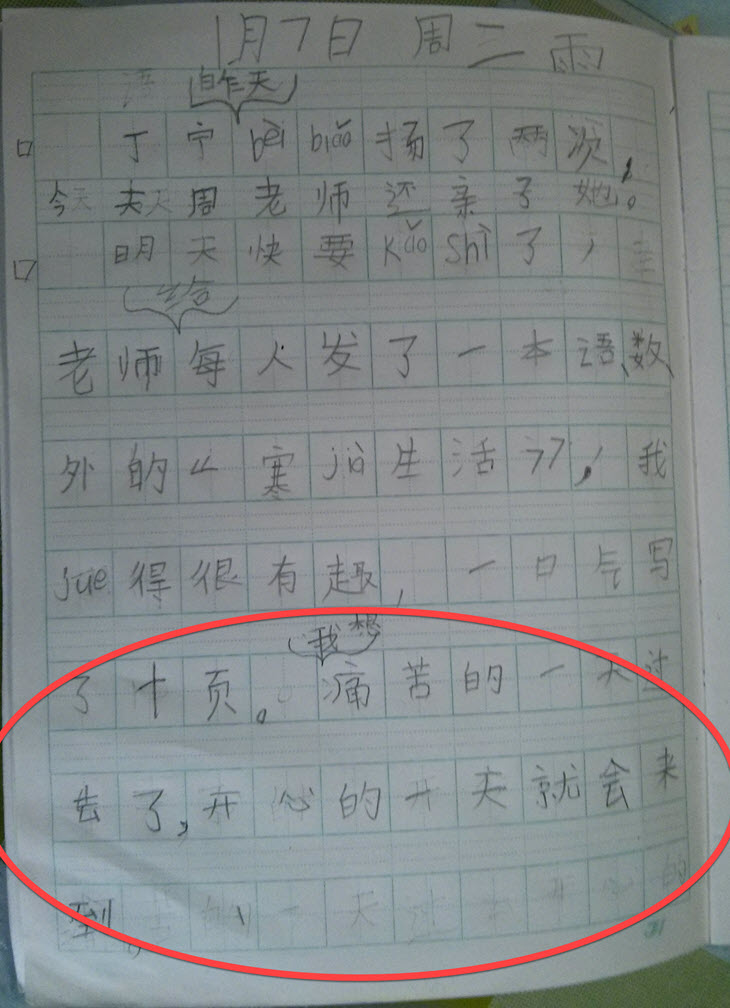 1月7日 周二 雨
昨天
丁宁bèi biǎo扬了两次,
今天周老师还亲了她。
明天快要kǎo shì了,
给
老师每人发了一本语、数、
外的《寒jià生活》,我
jue得很有趣,一口气写
我想
了十页。痛苦的一天过
去了,开心的一天就会来
到。